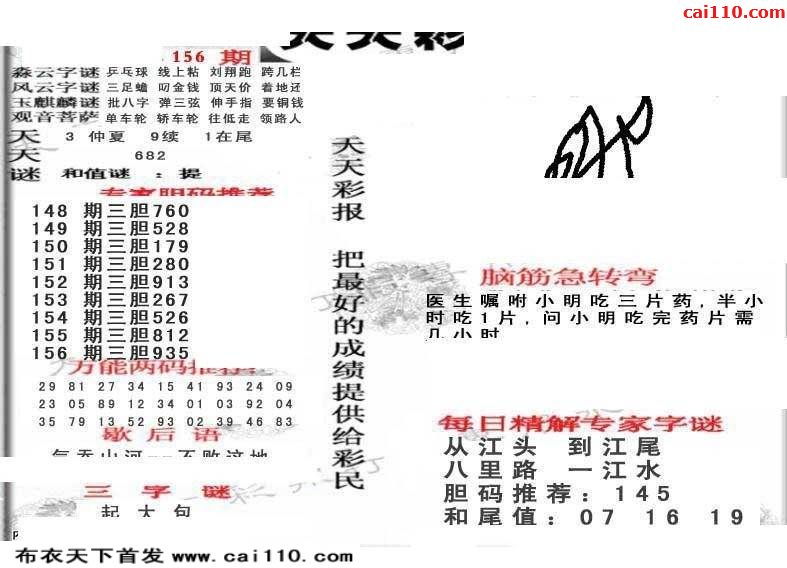 cai110.com
天天彩
156 期
淼云字谜 乒乓球 线上粘 刘翔跑 跨几栏
风云字谜 三足蟾 叼金钱 顶天价 着地还
玉麒麟谜 批八字 弹三弦 伸手指 要铜钱
观音菩萨 单车轮 轿车轮 往低走 领路人
天 3 仲夏 9续 1在尾
天 682
谜 和值谜 ：提
专家胆码推荐
148 期三胆760
149 期三胆528
150 期三胆179
151 期三胆280
152 期三胆913
153 期三胆267
154 期三胆526
155 期三胆812
156 期三胆935
万能两码推荐
29 81 27 34 15 41 93 24 09
23 05 89 12 34 01 03 92 04
35 79 13 52 93 02 39 46 83
歇后语
气吞山河--不败这地
三字谜
起大包
天天彩报 把最好的成绩提供给彩民
脑筋急转弯
医生嘱咐小明吃三片药,半小
时吃1片,问小明吃完药片需
几小时
每日精解专家字谜
从江头 到江尾
八里路 一江水
胆码推荐：145
和尾值：07 16 19
布衣天下首发 www.cai110.com